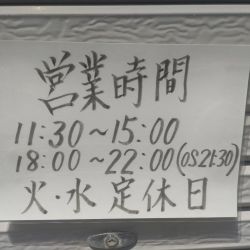 営業時間
11:30~15:00
18:00~22:00(OS21:30)
火・水定休日